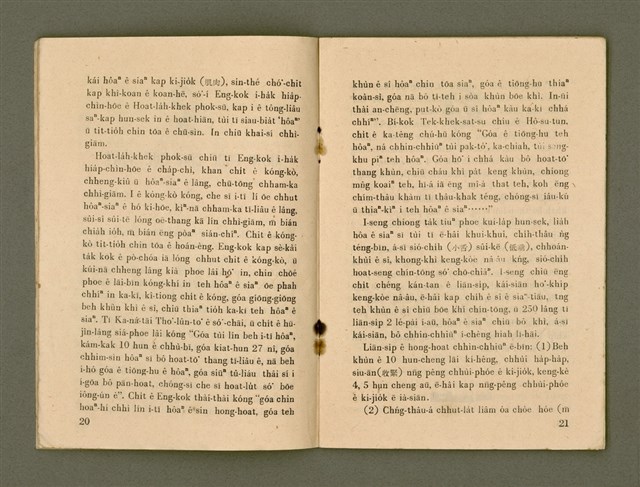 kái hôaⁿ ê siaⁿ kap ki-jio̍k (肌肉), sin-thé chō͘-chit
kap khì-koan ê koan-hē, só͘-í Eng-kok i-ha̍k hia̍p-
chìn-hōe ê Hoat-la̍h-khek phok-sū, kap i ê tông-liâu
saⁿ-kap hun-sek in ê hoat-hiān, tùi tī siau-bia̍t "hôaⁿ"
ū tit-tio̍h chin tōa ê chū-sìn. In chiū khai-sí chhì-
giām.
Hoat-la̍h-khek phok-sū chiū tī Eng-kok i-ha̍k
hia̍p-chìn-hōe ê cha̍p-chì, khan chi̍t ê kóng-kò,
chheng-kiû ū hôaⁿ-siaⁿ ê lâng, chū-tōng chham-ka
chhì-giām. I ê kóng-kò kóng, che sī i-tī lí ōe chhut
hôaⁿ-siaⁿ ê hó ki-hōe, kìⁿ-nā chham-ka tī-liâu ê lâng,
sûi-sî sûi-tē lóng oē-thang kā lín chhì-giām, m̄ bián
chia̍h io̍h, m̄ bián êng pòaⁿ sián-chîⁿ. Chit ê kóng-
kò tit-tio̍h chin tōa ê hoán-èng. Eng-kok kap sè-kài
ta̍k kok ê pò-chóa iā lóng chhut chit ê kóng-kò, ū
kúi-nā chheng lâng kià phoe lâi hō͘ in, chin chōe
phoe ê lāi-bīn kóng-khí in teh hôaⁿ ê siaⁿ ōe phah
chhíⁿ in ka-kī, kî-tiong chi̍t ê kóng, góa giōng-giōng
beh khùn khì ê sî, chiū thiaⁿ tio̍h ka-kī teh hôaⁿ ê
siaⁿ. Tī Ka-ná-tāi Tho͘-lûn-to͘ ê só͘-chāi, ū chi̍t ê hū-
jîn-lâng siá-phoe lâi kóng "Góa tùi lín beh i-tī hôaⁿ,
kám-kak 10 hun ê chhù-bī, góa kiat-hun 27 nî, góa
chhim-sìn hôaⁿ sī bô hoat-tō͘ thang tī-liâu ê, nā beh
i-hó góa ê tiōng-hu ê hôaⁿ, góa siūⁿ tû-liâu thâi sí i
í-gōa bô pān-hoat, chóng-sī che sī hoat-lu̍t só͘ bōe
iông-ún ê". Chi̍t ê Eng-kok thài-thài kóng "góa chin
hoaⁿ-hí chhì lín i-tī hôaⁿ ê sin hong-hoat, góa teh
20
khùn ê sî hôaⁿ chin tōa siaⁿ, góa ê tiōng-hu thiaⁿ
koàn-sì, góa nā bô tī-teh i sòa khùn bōe khì. In-ūi
thài an-chēng, put-kò góa ū sî hôaⁿ kàu ka-kī chhá
chhíⁿ". Bí-kok Tek-khek-sat-su chiu ê Hô-su-tun,
chi̍t ê ka-têng chú-hū kóng "Góa ê tiōng-hu teh
hôaⁿ, ná chhin-chhiūⁿ tùi pak-tó͘, ka-chiah, tùi sang-
khu pìⁿ teh hôaⁿ. Góa hō͘ i chhá kàu bô hoat-tō͘
thang khùn, chiū cháu khì pa̍t keng khùn, chiong
mn̂g koaiⁿ teh, hī-á iā ēng mi̍-á that teh, koh ēng
chím-thâu khàm tī thâu-khak téng, chóng-sī iáu-kú
ū thiaⁿ-kìⁿ i teh hôaⁿ ê siaⁿ······"
I-seng chiong ta̍k tiuⁿ phoe kui-la̍p hun-sek, lia̍h
hôaⁿ ê siaⁿ sī tùi tī ê-hâi khui-khui, chi̍h-thâu n̄g
téng-bīn, á-sī siò-chi̍h (小舌) sûi-kē (低垂), chhoán-
khùi ê sî, khong-khì keng-kòe nâ-âu kńg, siò-chi̍h
hoat-seng chín-tōng só͘ chō-chiâⁿ". I-seng chiū ēng
chi̍t chéng kán-tan ê liān-si̍p, kái-siān hō͘-khip
keng-kòe nâ-âu, ē-hâi kap chi̍h ê sî ê siaⁿ-tiāu, tng
teh khùn ê sî chiū bōe khì chín-tōng, ū 250 lâng tī
liān-si̍p 2 lé-pài í-āu, hôaⁿ ê siaⁿ chiū bô khì, á-sī
kái-siān, bô chhin-chhiūⁿ í-chêng hiah lī-hāi.
Liān-si̍p ê hong-hoat chhin-chhiūⁿ ē-bīn: (1) Beh
khùn ê 10 hun-cheng lāi ki-hêng, chhùi ha̍p-ha̍p,
siu-ān (收緊) nn̄g pêng chhùi-phóe ê ki-jio̍k, keng-kè
4, 5 hun cheng aū, ē-hâi kap nn̄g-pêng chhùi-phóe
ê ki-jio̍k ē ià-siān.
(2) Chn̂g-thâu-á chhut-la̍t liâm óa chóe hóe (m
21